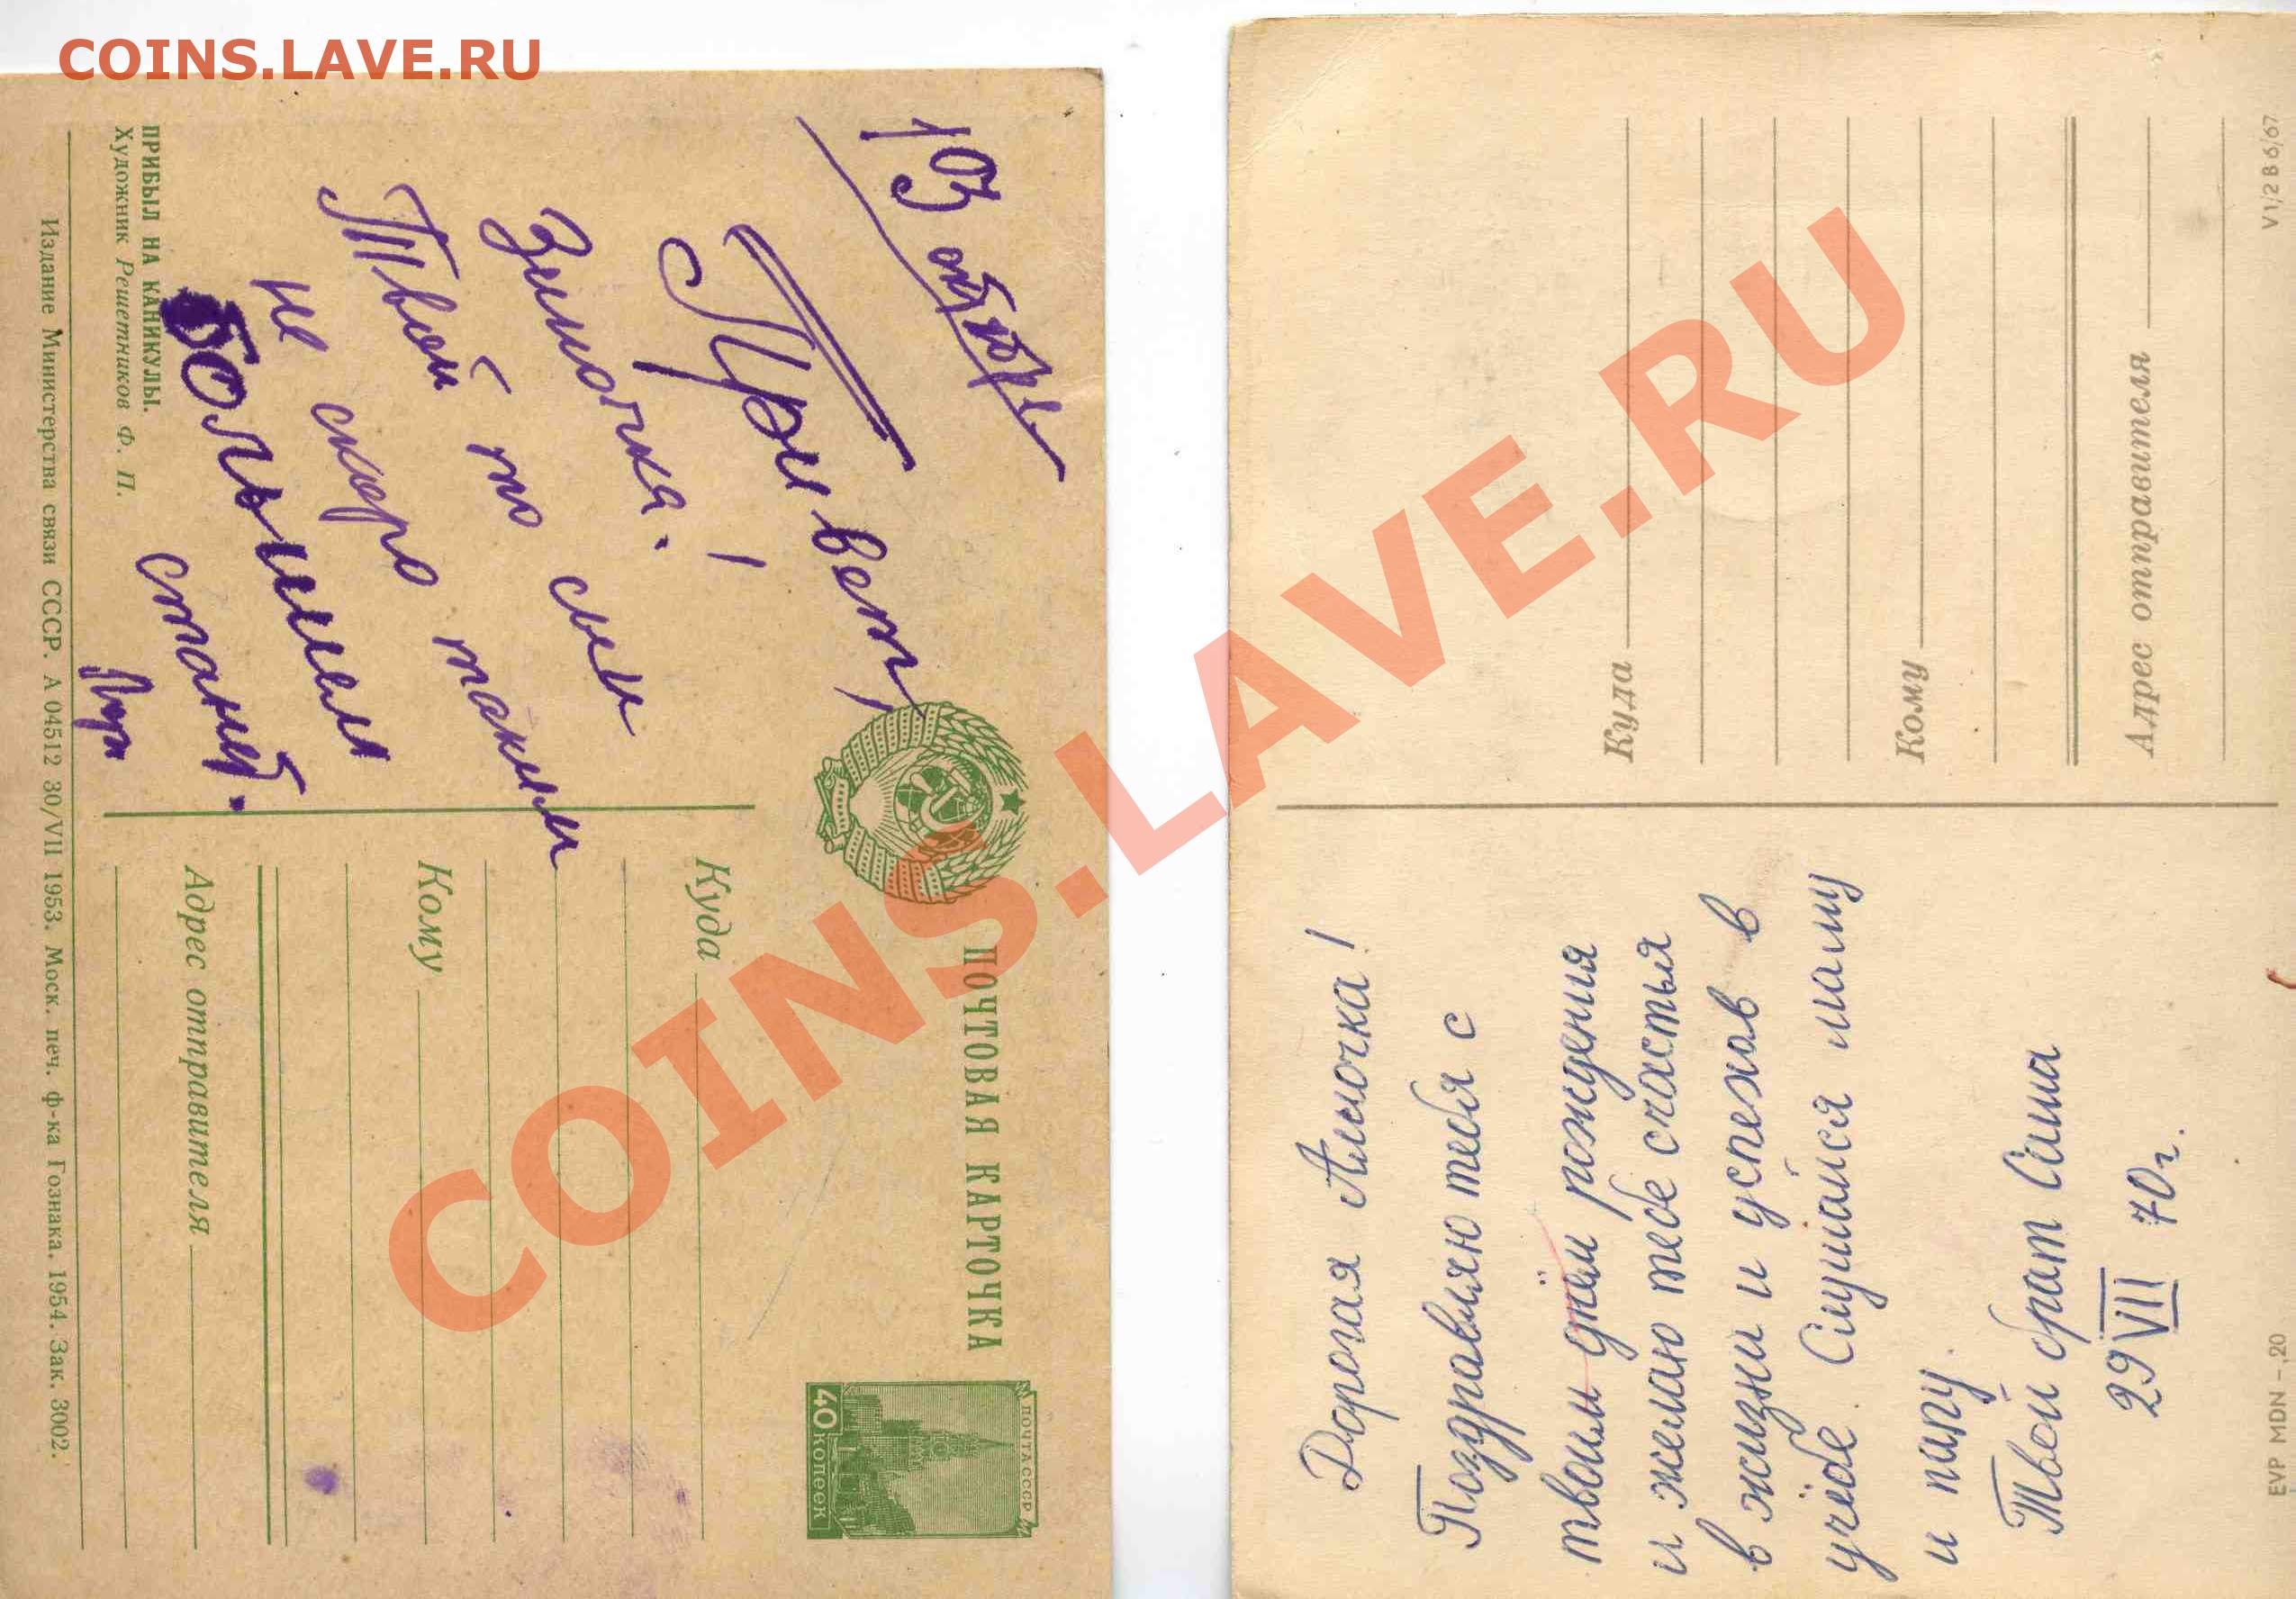 COINS.LAVE.RU
Привет,
Зиночка!
Твой то сын
не скоро таким
большим
станет.
ПРИБЫЛ НА КАНИКУЛЫ.
Художник Решетников Ф. П.
Издание Министерства связи СССР. А 04512 30/VII 1953. Моск. печ. ф-ка Гознака. 1954. Зак. 3002.
ПОЧТОВАЯ КАРТОЧКА
ПОЧТА СССР
40 КОПЕЕК
Куда
Кому
Адрес отправителя
Дорогая Аллочка!
Поздравляю тебя с
твоим днём рождения
и желаю тебе счастья
в жизни и успехов в
учёбе. Слушайся маму
и папу.
Твой брат Саша
29 VIII 70г.
Куда
Кому
Адрес отправителя
V 1/2 В 6/67
EVP MDN -,20
COINS.LAVE.RU